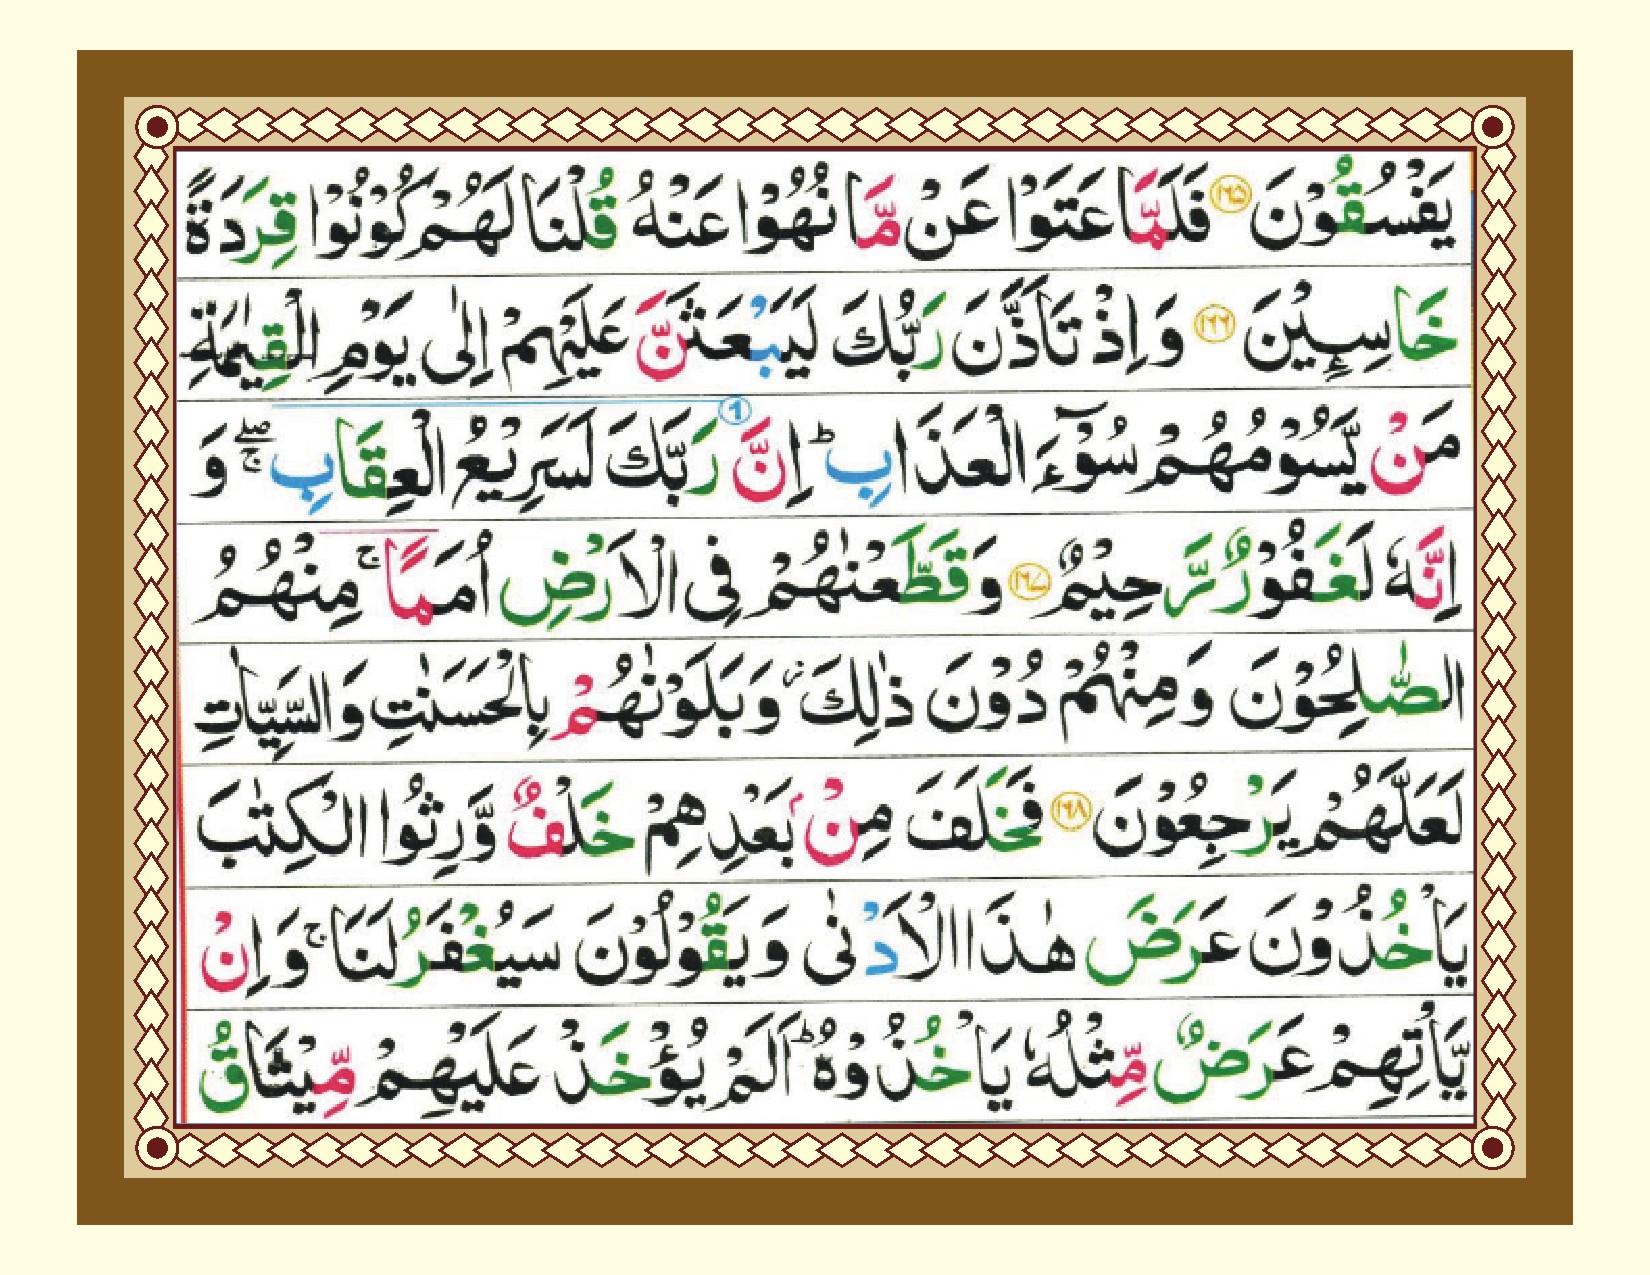 يَفْسُقُوْنَ ﴿۱۶۵﴾ فَلَمَّا عَتَوْا عَنْ مَّا نُهُوْا عَنْهُ قُلْنَا لَهُمْ كُوْنُوْا قِرَدَةً
خَاسِـِٕيْنَ ﴿۱۶۶﴾ وَاِذْ تَاَذَّنَ رَبُّكَ لَيَبْعَثَنَّ عَلَيْهِمْ اِلٰى يَوْمِ الْقِيٰمَةِ
مَنْ يَّسُوْمُهُمْ سُوْٓءَ الْعَذَابِ ؕ اِنَّ رَبَّكَ لَسَرِيْعُ الْعِقَابِ ۖۚ وَ
اِنَّهٗ لَغَفُوْرٌ رَّحِيْمٌ ﴿۱۶۷﴾ وَقَطَّعْنٰهُمْ فِى الْاَرْضِ اُمَمًا ۚ مِنْهُمُ
الصّٰلِحُوْنَ وَمِنْهُمْ دُوْنَ ذٰلِكَ ؗ وَبَلَوْنٰهُمْ بِالْحَسَنٰتِ وَالسَّيِّاٰتِ
لَعَلَّهُمْ يَرْجِعُوْنَ ﴿۱۶۸﴾ فَخَلَفَ مِنْۢ بَعْدِهِمْ خَلْفٌ وَّرِثُوا الْكِتٰبَ
يَاْخُذُوْنَ عَرَضَ هٰذَا الْاَدْنٰى وَيَقُوْلُوْنَ سَيُغْفَرُ لَنَا ۚ وَاِنْ
يَّاْتِهِمْ عَرَضٌ مِّثْلُهٗ يَاْخُذُوْهُ ؕ اَلَمْ يُؤْخَذْ عَلَيْهِمْ مِّيْثَاقُ